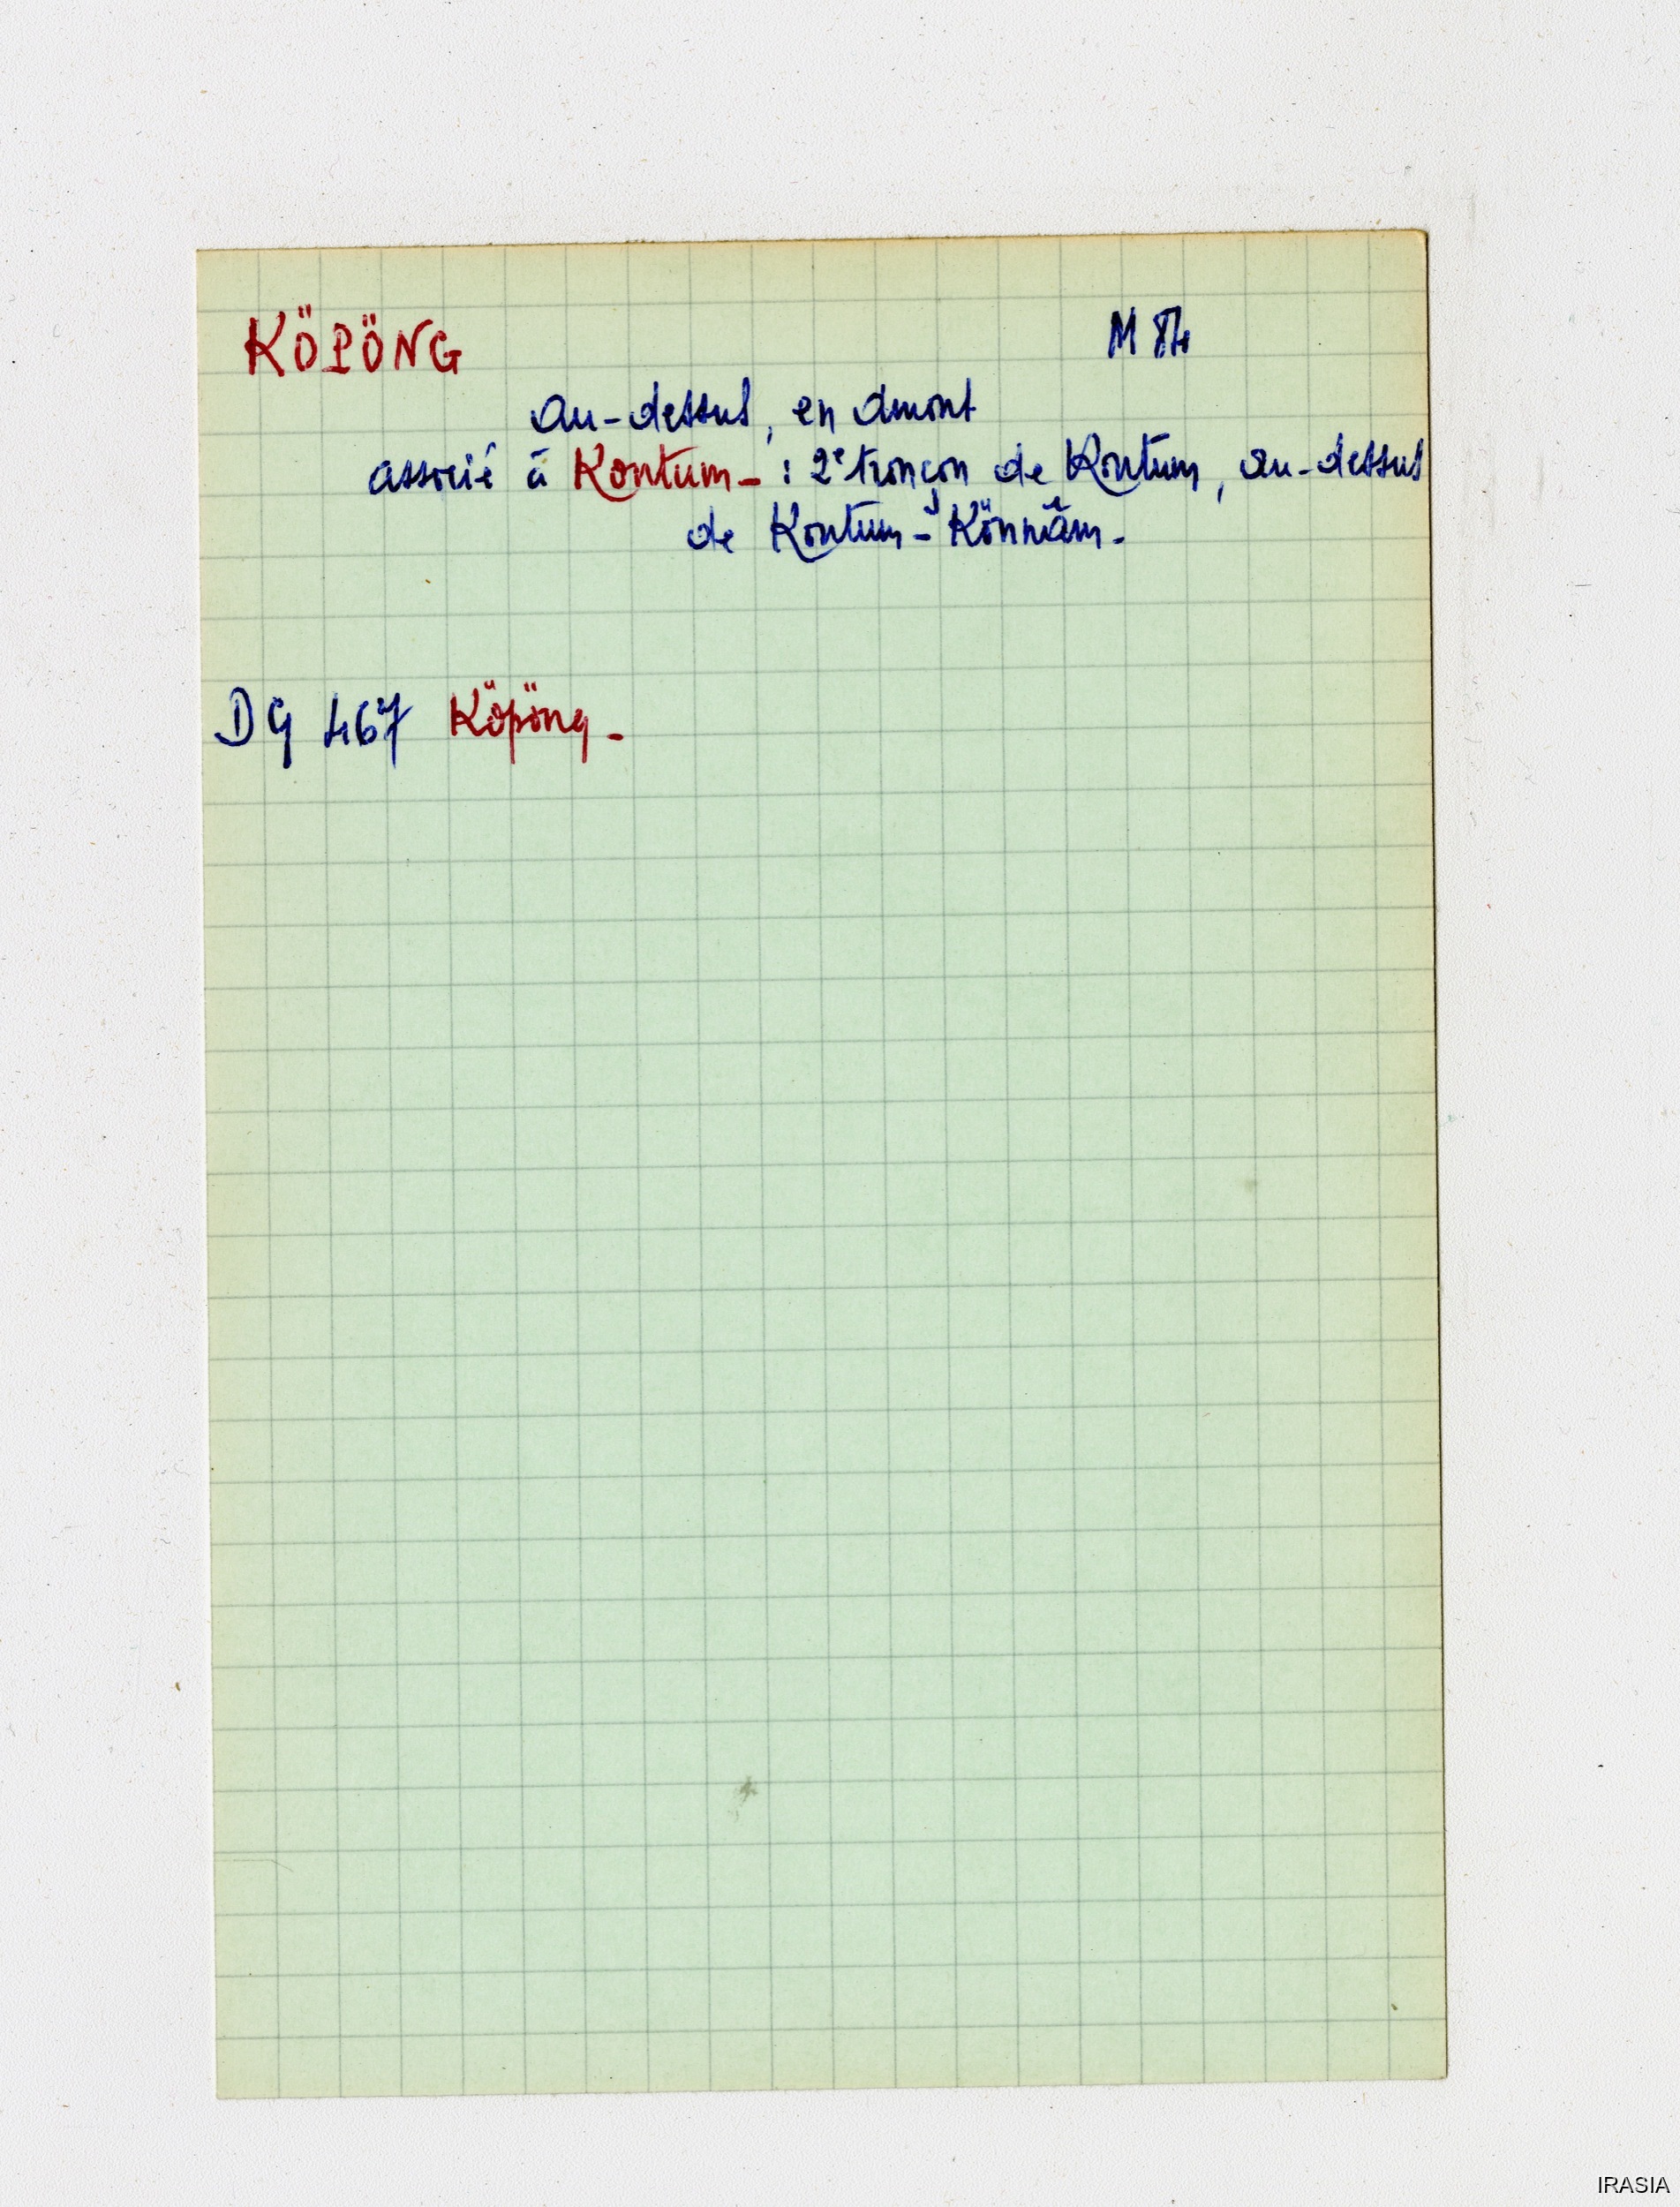 KÖPÖNG M 84
au-dessus, en amont
associé à Kontum - : 2e tronçon de Kontum, au-dessus
de Kontum - Könnâm -
DG 467 Köpöng -
IRASIA